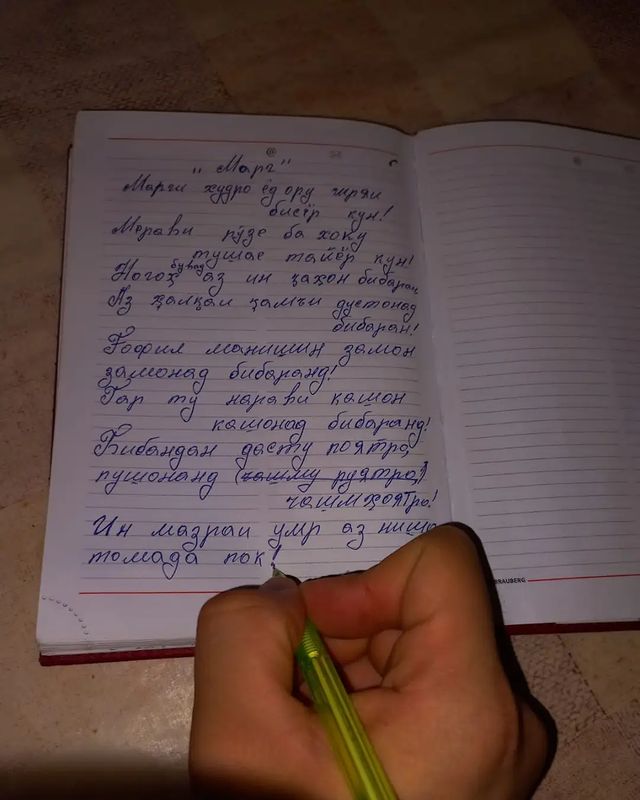 „Марг"
Марги худро ёд ору гиряи
бисёр кун!
Мерави рӯзе ба хоку
тушае тайёр кун!
Ногоҳ бувад аз ин ҷаҳон бибаран
Аз ҳалқаи ҷамъи дустонад
бибаран!
Ғофил манишин замон
замонад бибаранд!
Гар ту нарави кашон
кашонад бибаранд!
Бибандан дасту поятра
пушонанд (чашму руятра)
чашмҳоятра!
Ин мазраи умр аз
томада пок!
BRAUBERG